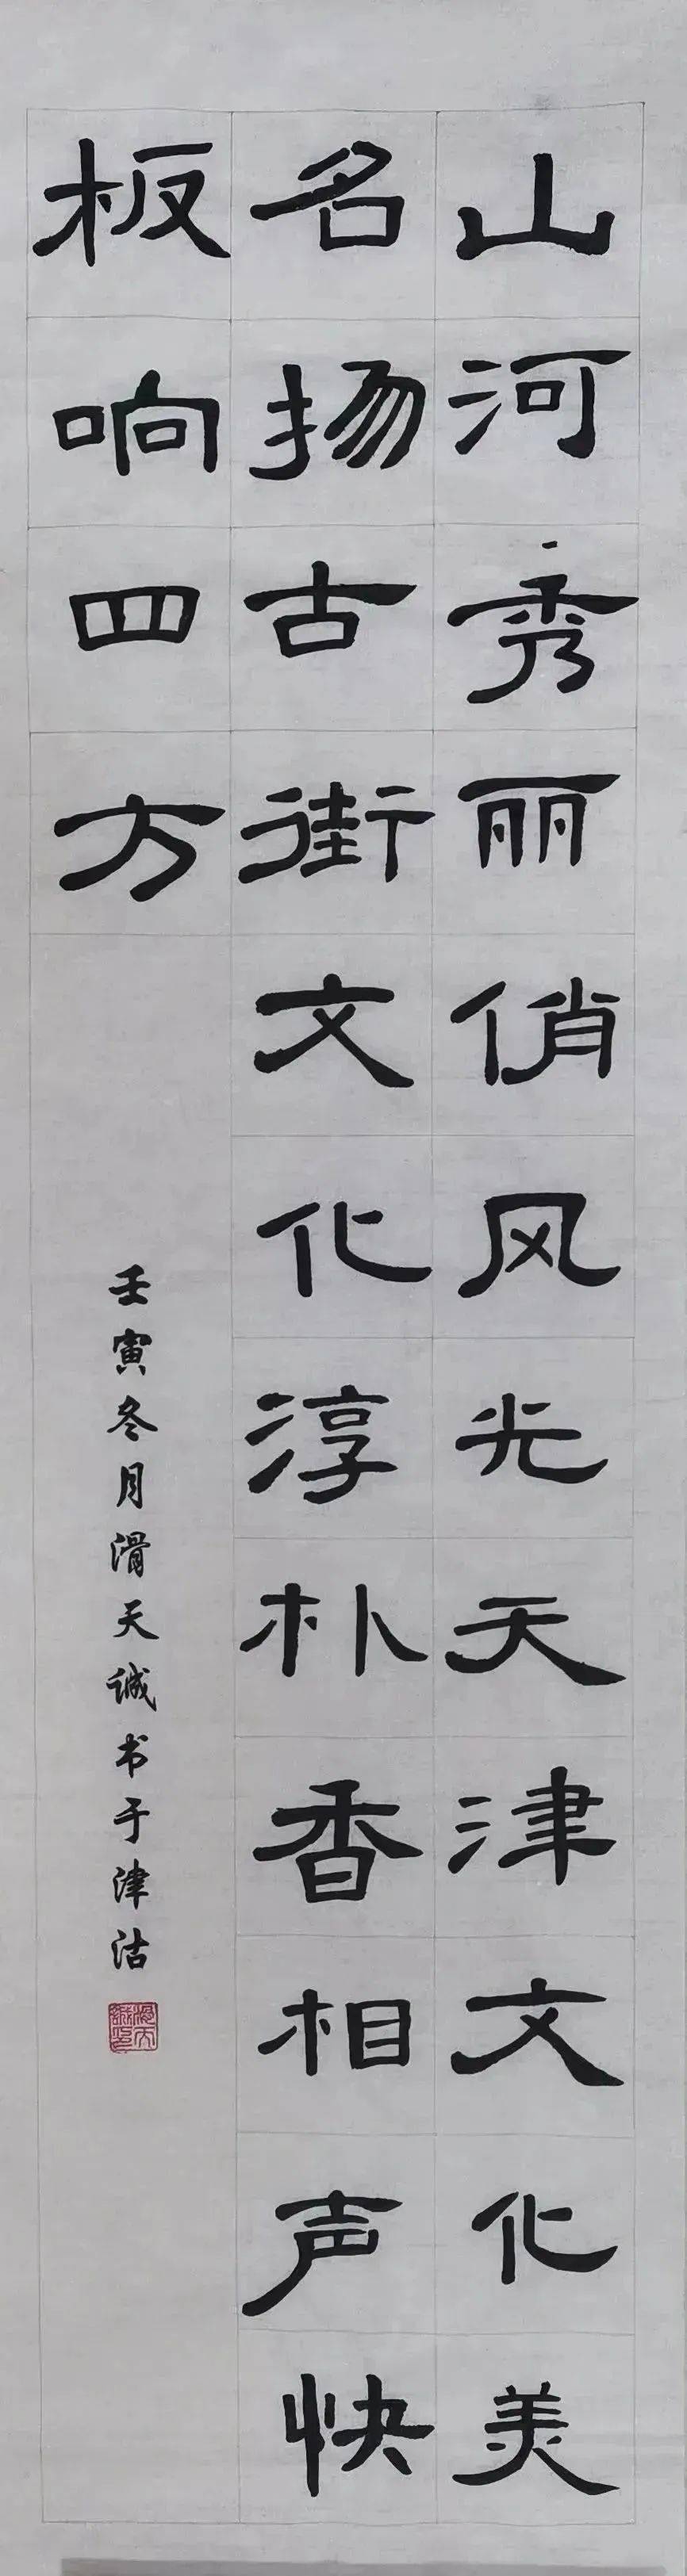 山河秀丽俏风光天津文化美
名扬古街文化淳朴香相声快
板响四方
壬寅冬月滑天诚书于津沽